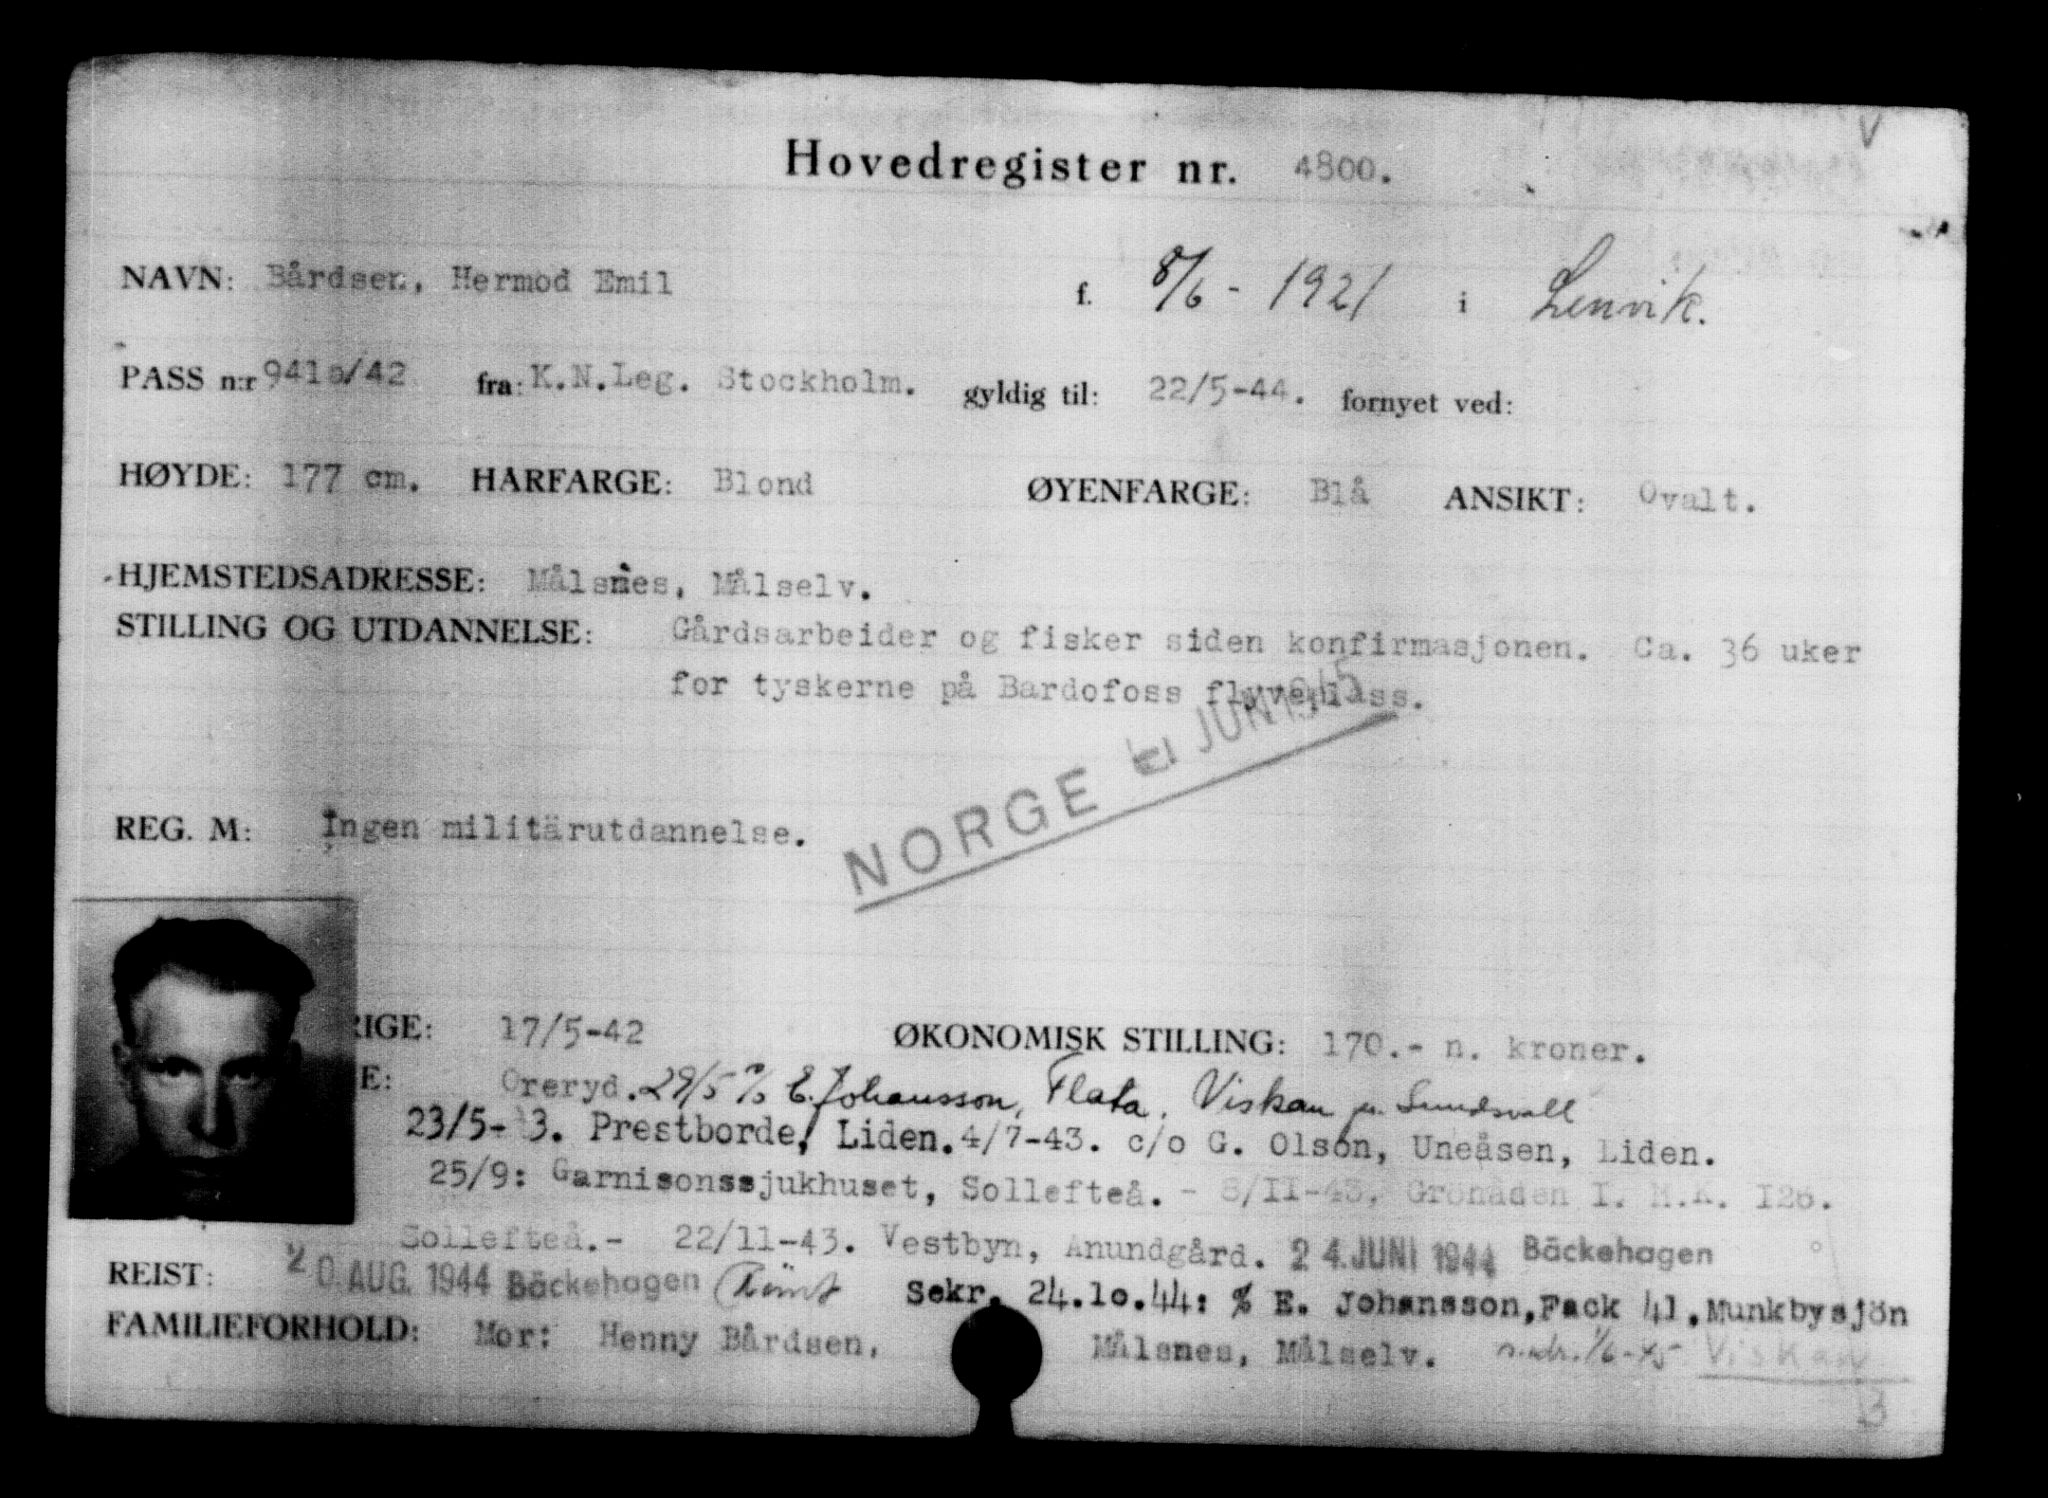 V
Hovedregister nr. 4800.
NAVN: Bårdsen, Hermod Emil f. 8/6 - 1921 i Lenvik.
PASS n:r 941a/42 fra: K.N.Leg. Stockholm. gyldig til: 22/5-44. fornyet ved:
HØYDE: 177 cm. HÅRFARGE: Blond ØYENFARGE: Blå ANSIKT: Ovalt.
HJEMSTEDSADRESSE: Målsnes, Målselv.
STILLING OG UTDANNELSE: Gårdsarbeider og fisker siden konfirmasjonen. Ca. 36 uker
for tyskerne på Bardofoss flyveplass.
NORGE JUNI 1945
REG. M: Ingen militärutdannelse.
RIGE: 17/5-42 ØKONOMISK STILLING: 170.- n. kroner.
E: Oreryd. 29/5 c/o E. Johansson, Flata, Viskan pr. Sundsvall
23/5-43. Prestborde, Liden. 4/7-43. c/o G. Olson, Uneåsen, Liden.
25/9: Garnisonssjukhuset, Sollefteå. - 8/II-43, Gronåden I. M.K. I26.
Sollefteå.- 22/11-43. Vestbyn, Anundgård. 24. JUNI 1944 Bäckehagen
REIST: 20. AUG. 1944 Bäckehagen Sekr. 24.10.44: c/o E. Johansson, Fack 41, Munkbysjön
FAMILIEFORHOLD: Mor: Henny Bårdsen, Målsnes, Målselv. 1/6-45 Viskan
3